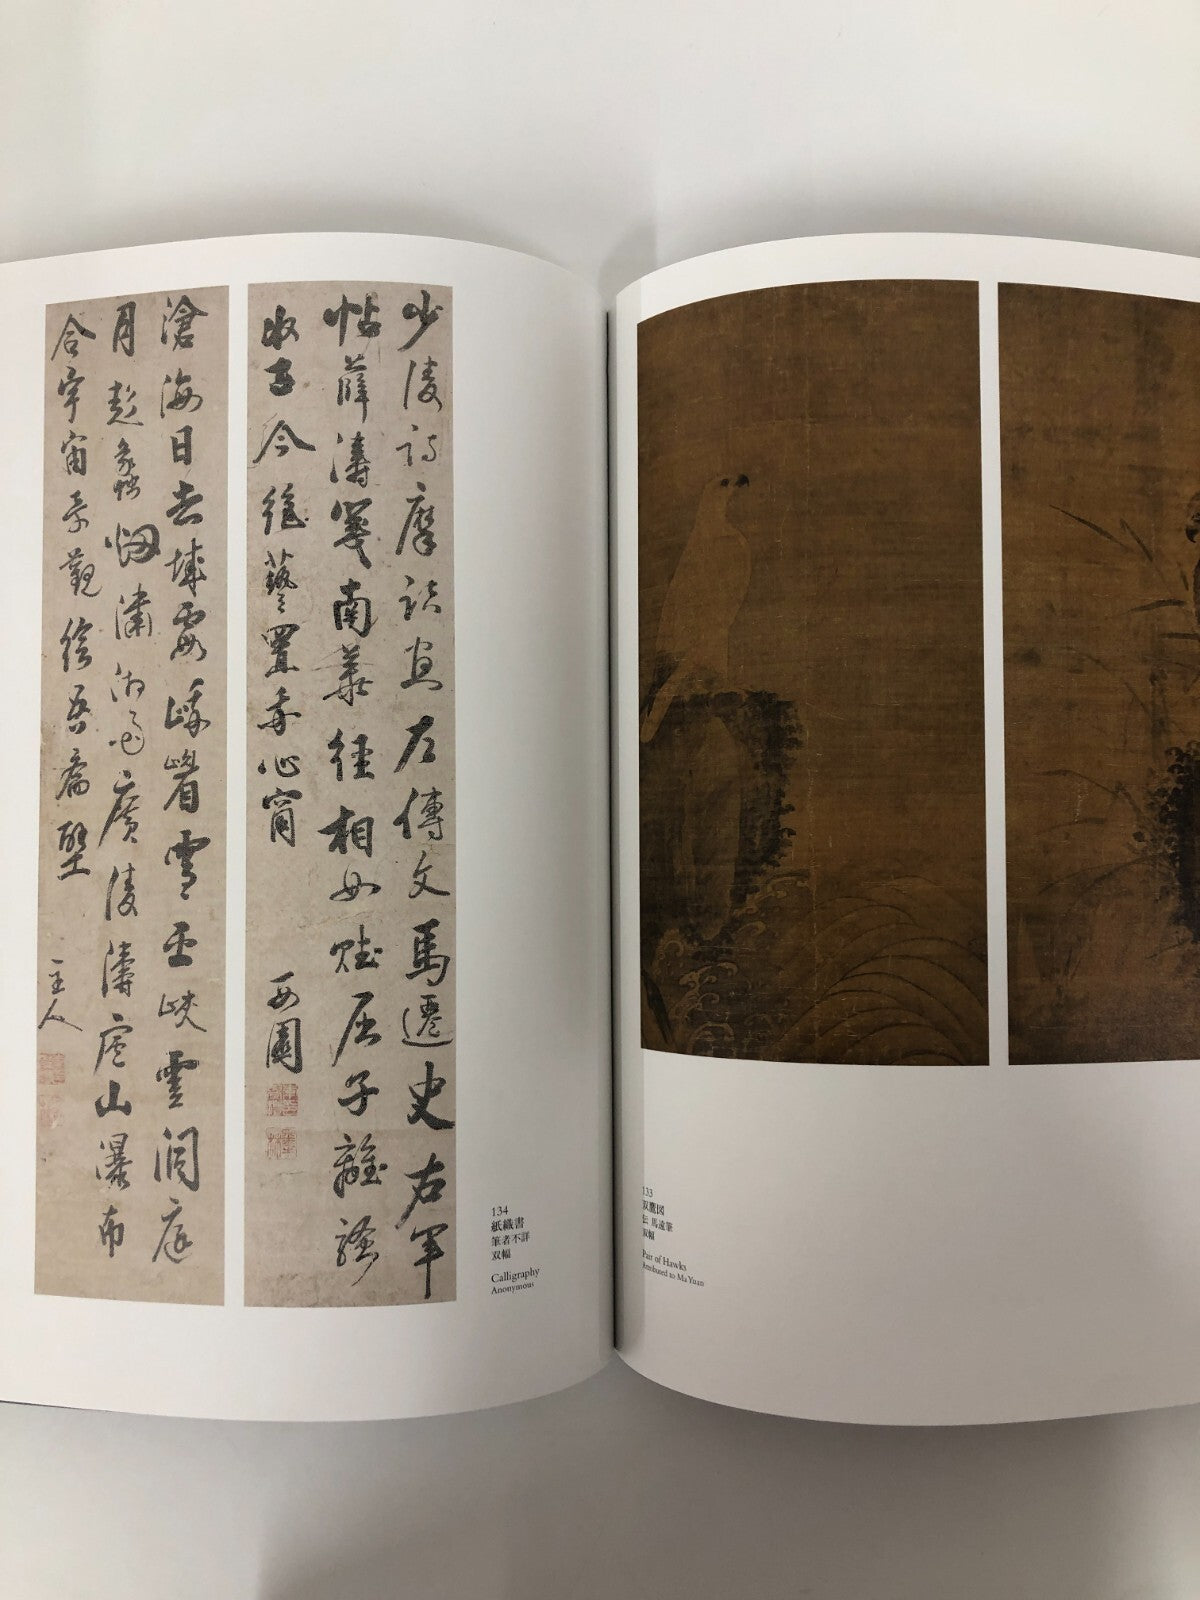 133
双鷹図
伝 馬遠筆
双幅
Pair of Hawks
Attributed to Ma Yuan
少陵詩摩詰畫左傳文馬遷史右軍
帖薛濤箋南華經相如賦屈子離騷
收古今絶藝置我心窗
西園
滄海日赤城霞峨嵋雪巫峽雲洞庭
月彭蠡烟瀟湘雨廣陵濤廬山瀑布
合宇宙奇觀繪吾齋壁
主人
134
紙織書
筆者不詳
双幅
Calligraphy
Anonymous